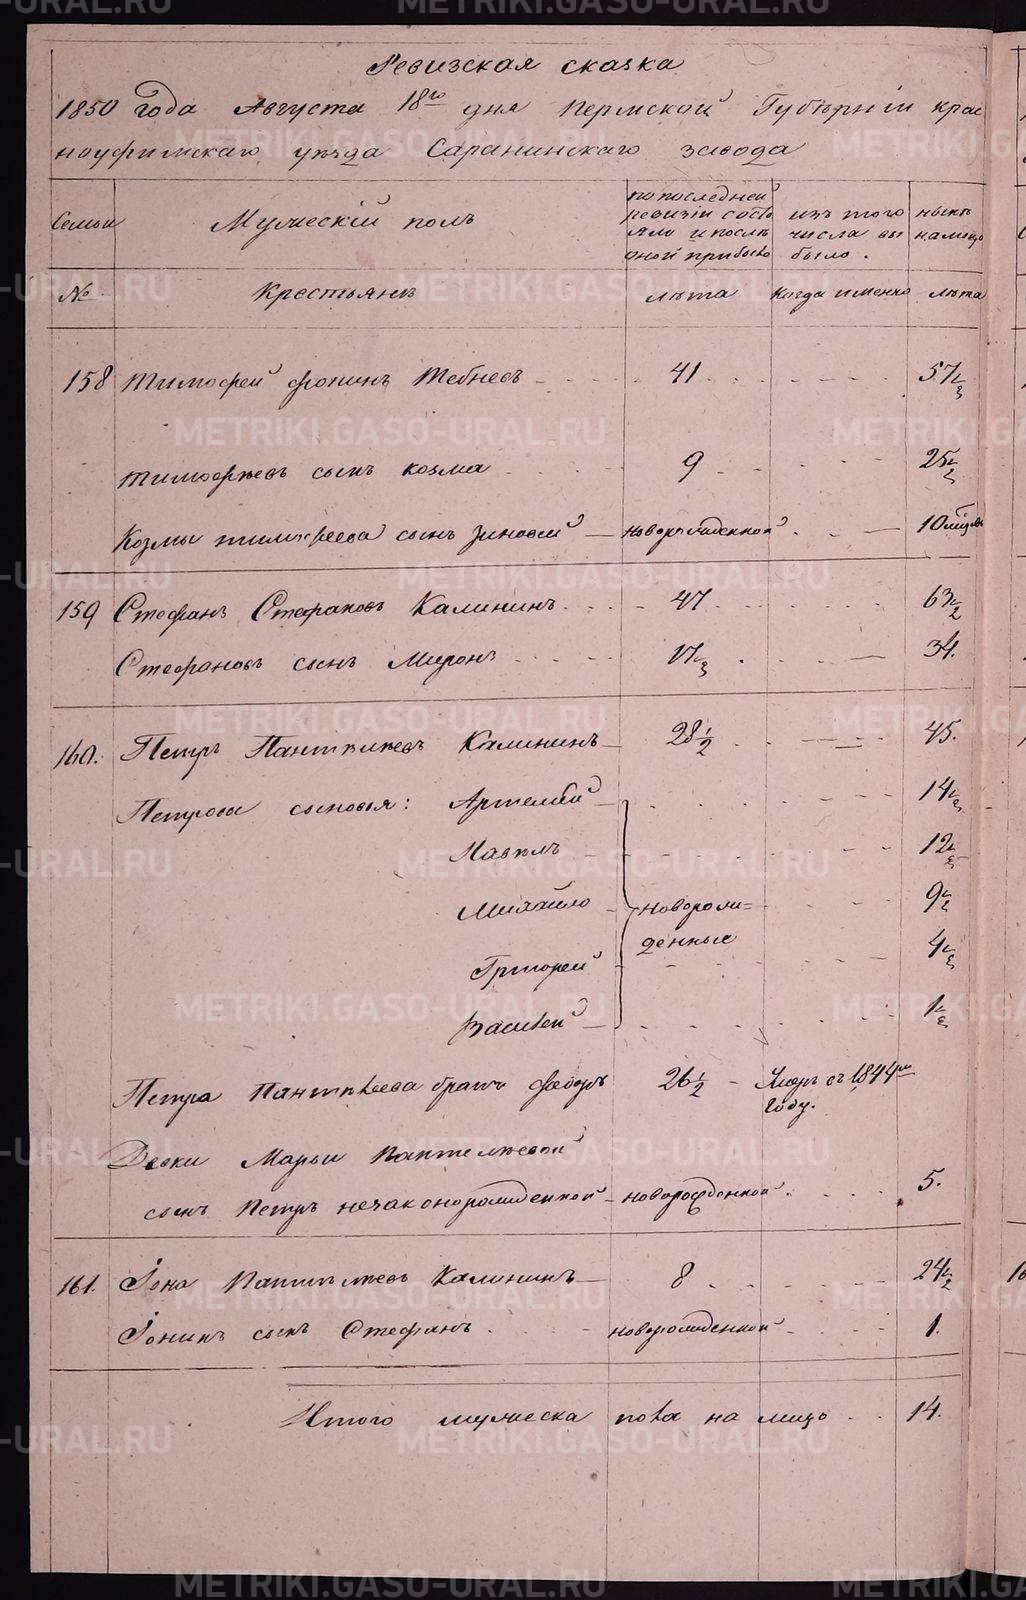 Ревизская сказка
1850 Года Августа 18го дня Пермской Губѣрніи крас
ноуфимскаго уѣзда Саранинскаго завода
Семьи Мужескій полъ по последней ревизіи состояло и послѣ оной прибыло изъ того числа выбыло. нынѣ на лицо
№ Крестьянѣ лѣта Когда именно лѣта
158 Тимофей Фокинъ Тебневъ 41 57½
Тимофѣевъ сынъ козма 9 25½
Козмы тимофеева сынъ Зиновей новорожденной 10 мѣсяц
159 Стефанъ Стефановъ Калининъ 47 63½
Стефановъ сынъ Миронъ 17½ 34.
160. Петръ Пантѣлѣевъ Калининъ 28½ 45.
Петрова сыновья: Артемей 14½
Павелъ 12½
Михайло новорож= 9½
денные
Григорей 4½
Василей 1½
Петра Пантѣлеева братъ Федоръ 26½ Умеръ съ 1844го
Году.
Девки Марьи Пантелѣевой
сынъ Петръ незаконорожденной новорожденной 5.
161. Іона Пантѣлѣевъ Калининъ 8 24½
Іонинъ сынъ Стефанъ новорожденной 1.
Итого мужеска пола на лицо 14.
METRIKI.GASO-URAL.RU